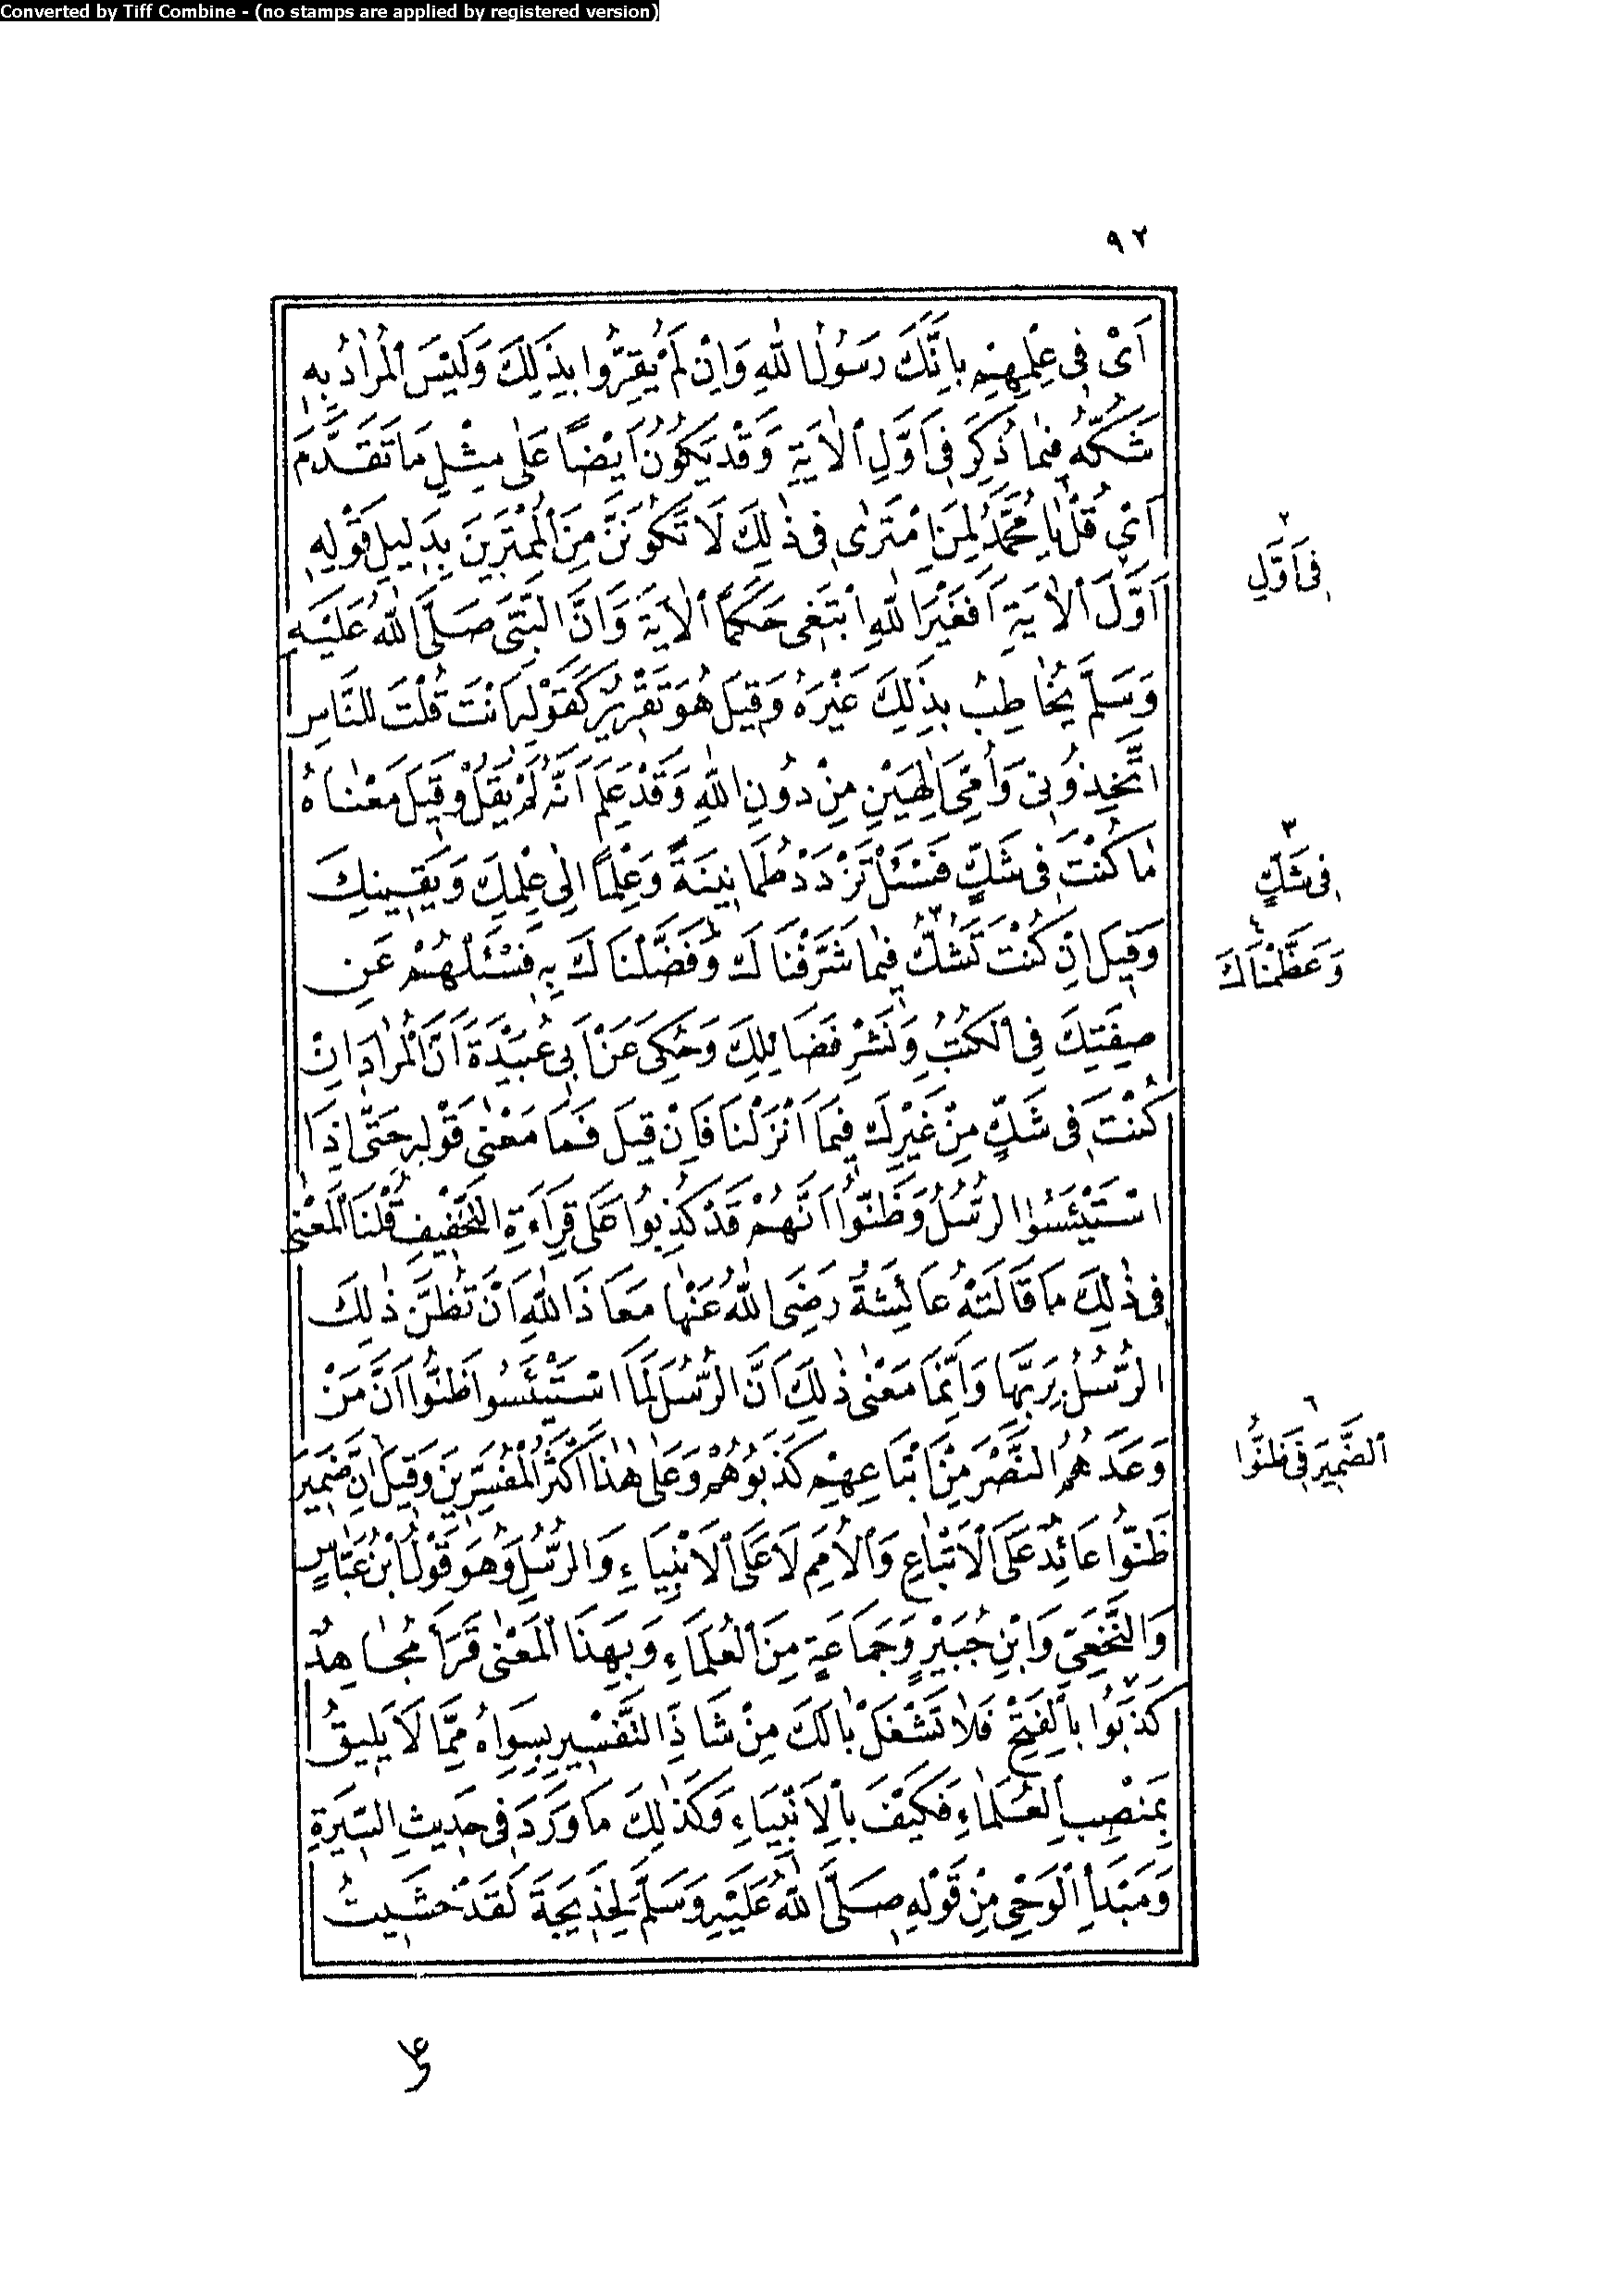 Converted by Tiff Combine - (no stamps are applied by registered version)
٩٢
اَىْ فِى عِلْمِهِمْ بِاَنَّكَ رَسُولُ اللهِ وَاِنْ لَمْ يُقِرُّوا بِذَلِكَ وَلَيْسَ الْمُرَادُ بِهِ
شَكَّهُ فِيمَا ذُكِرَ فِى اَوَّلِ الْاٰيَةِ وَقَدْ يَكُونُ اَيْضًا عَلٰى مِثْلِ مَا تَقَدَّمَ
اَىْ قُلْ يَا مُحَمَّدُ لِمَنِ امْتَرٰى فِى ذٰلِكَ لَا تَكُونَنَّ مِنَ الْمُمْتَرِينَ بِدَلِيلِ قَوْلِهِ
٢
فِى اَوَّلِ
اَوَّلَ الْاٰيَةِ اَفَغَيْرَ اللهِ اَبْتَغِى حَكَمًا الْاٰيَةَ وَاَنَّ النَّبِىَّ صَلَّى اللهُ عَلَيْهِ
وَسَلَّمَ يُخَاطِبُ بِذَلِكَ غَيْرَهُ وَقِيلَ هُوَ تَقْرِيرٌ كَقَوْلِهِ ءَاَنْتَ قُلْتَ لِلنَّاسِ
اتَّخِذُونِى وَاُمِّىَ اِلٰهَيْنِ مِنْ دُونِ اللهِ وَقَدْ عَلِمَ اَنَّهُ لَمْ يَقُلْ وَقِيلَ مَعْنَاهُ
مَا كُنْتَ فِى شَكٍّ فَسْئَلْ تَزْدَدْ طُمَانِينَةً وَعِلْمًا اِلٰى عِلْمِكَ وَيَقِينِكَ
٣
فِى شَكٍّ
وَقِيلَ اِنْ كُنْتَ تَشُكُّ فِيمَا شَرَّفْنَاكَ وَفَضَّلْنَاكَ بِهِ فَسْئَلْهُمْ عَنْ
٤
وَعَظَّمْنَاكَ
صِفَتِكَ فِى الْكُتُبِ وَنَشْرِ فَضَائِلِكَ وَحُكِىَ عَنْ اَبِى عُبَيْدَةَ اَنَّ الْمُرَادَ اِنْ
كُنْتَ فِى شَكٍّ مِنْ غَيْرِكَ فِيمَا اَنْزَلْنَا فَاِنْ قِيلَ فَمَا مَعْنٰى قَوْلِهِ حَتّٰى اِذَا
اسْتَيْئَسَ الرُّسُلُ وَظَنُّوا اَنَّهُمْ قَدْ كُذِبُوا عَلٰى قِرَاءَةِ التَّخْفِيفِ قُلْنَا الْمَعْنٰى
فِى ذٰلِكَ مَا قَالَتْهُ عَائِشَةُ رَضِىَ اللهُ عَنْهَا مَعَاذَ اللهِ اَنْ تَظُنَّ ذٰلِكَ
الرُّسُلُ بِرَبِّهَا وَاِنَّمَا مَعْنٰى ذٰلِكَ اَنَّ الرُّسُلَ لَمَّا اسْتَيْئَسُوا ظَنُّوا اَنَّ مَنْ
وَعَدَهُمُ النَّصْرَ مِنْ اَتْبَاعِهِمْ كَذَبُوهُمْ وَعَلٰى هٰذَا اَكْثَرُ الْمُفَسِّرِينَ وَقِيلَ اِنَّ ضَمِيرَ
٦
الضَّمِيرَ فِى ظَنُّوا
ظَنُّوا عَائِدٌ عَلَى الْاَتْبَاعِ وَالْاُمَمِ لَا عَلَى الْاَنْبِيَاءِ وَالرُّسُلِ وَهُوَ قَوْلُ ابْنِ عَبَّاسٍ
وَالنَّخَعِىِّ وَابْنِ جُبَيْرٍ وَجَمَاعَةٍ مِنَ الْعُلَمَاءِ وَبِهَذَا الْمَعْنٰى قَرَأَ مُجَاهِدٌ
كَذَبُوا بِالْفَتْحِ فَلَا تَشْغَلْ بَالَكَ مِنْ شَاذِّ التَّفْسِيرِ بِسِوَاهُ مِمَّا لَا يَلِيقُ
بِمَنْصِبِ الْعُلَمَاءِ فَكَيْفَ بِالْاَنْبِيَاءِ وَكَذٰلِكَ مَا وَرَدَ فِى حَدِيثِ السِّيرَةِ
وَمَبْدَأِ الْوَحْىِ مِنْ قَوْلِهِ صَلَّى اللهُ عَلَيْهِ وَسَلَّمَ لِخَدِيجَةَ لَقَدْ خَشِيتُ